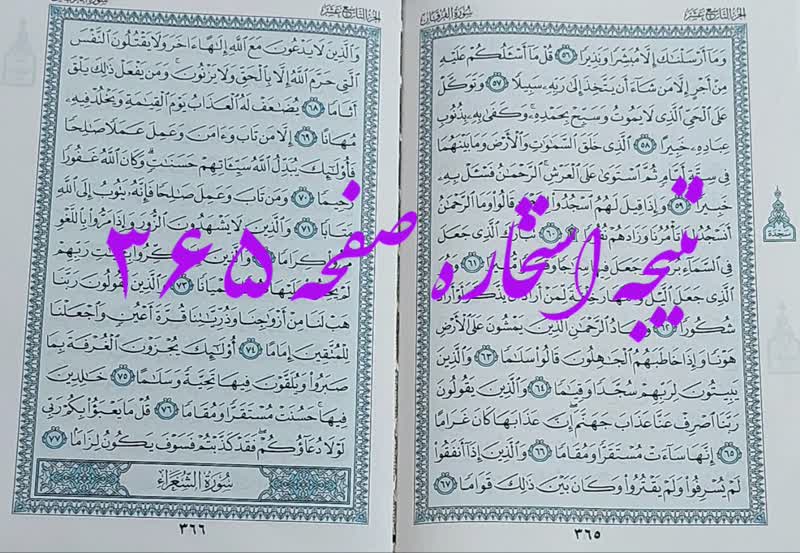 الجزء التاسع عشر
سورة الفرقان
وَمَا أَرْسَلْنَٰكَ إِلَّا مُبَشِّرًا وَنَذِيرًا ٥٦ قُلْ مَا أَسْـَٔلُكُمْ عَلَيْهِ
مِنْ أَجْرٍ إِلَّا مَن شَاءَ أَن يَتَّخِذَ إِلَىٰ رَبِّهِ سَبِيلًا ٥٧ وَتَوَكَّلْ
عَلَى الْحَيِّ الَّذِي لَا يَمُوتُ وَسَبِّحْ بِحَمْدِهِ وَكَفَىٰ بِهِ بِذُنُوبِ
عِبَادِهِ خَبِيرًا ٥٨ الَّذِي خَلَقَ السَّمَٰوَٰتِ وَالْأَرْضَ وَمَا بَيْنَهُمَا
فِي سِتَّةِ أَيَّامٍ ثُمَّ اسْتَوَىٰ عَلَى الْعَرْشِ الرَّحْمَٰنُ فَسْـَٔلْ بِهِ
خَبِيرًا ٥٩ وَإِذَا قِيلَ لَهُمُ اسْجُدُوا قَالُوا وَمَا الرَّحْمَٰنُ
أَنَسْجُدُ لِمَا تَأْمُرُنَا وَزَادَهُمْ ٦٠ تَبَارَكَ الَّذِي جَعَلَ
فِي السَّمَاءِ وَجَعَلَ فِيهَا ٦١
الَّذِي جَعَلَ الَّيْلَ
شُكُورًا ٦٢ الرَّحْمَٰنِ الَّذِينَ يَمْشُونَ عَلَى الْأَرْضِ
هَوْنًا وَإِذَا خَاطَبَهُمُ الْجَٰهِلُونَ قَالُوا سَلَٰمًا ٦٣ وَالَّذِينَ
يَبِيتُونَ لِرَبِّهِمْ سُجَّدًا وَقِيَٰمًا ٦٤ وَالَّذِينَ يَقُولُونَ
رَبَّنَا اصْرِفْ عَنَّا عَذَابَ جَهَنَّمَ إِنَّ عَذَابَهَا كَانَ غَرَامًا
٦٥ إِنَّهَا سَاءَتْ مُسْتَقَرًّا وَمُقَامًا ٦٦ وَالَّذِينَ إِذَا أَنفَقُوا
لَمْ يُسْرِفُوا وَلَمْ يَقْتُرُوا وَكَانَ بَيْنَ ذَٰلِكَ قَوَامًا ٦٧
٣٦٥
الجزء التاسع عشر
وَالَّذِينَ لَا يَدْعُونَ مَعَ اللَّهِ إِلَٰهًا ءَاخَرَ وَلَا يَقْتُلُونَ النَّفْسَ
الَّتِي حَرَّمَ اللَّهُ إِلَّا بِالْحَقِّ وَلَا يَزْنُونَ وَمَن يَفْعَلْ ذَٰلِكَ يَلْقَ
أَثَامًا ٦٨ يُضَٰعَفْ لَهُ الْعَذَابُ يَوْمَ الْقِيَٰمَةِ وَيَخْلُدْ فِيهِ
مُهَانًا ٦٩ إِلَّا مَن تَابَ وَءَامَنَ وَعَمِلَ عَمَلًا صَٰلِحًا
فَأُولَٰئِكَ يُبَدِّلُ اللَّهُ سَيِّـَٔاتِهِمْ حَسَنَٰتٍ وَكَانَ اللَّهُ غَفُورًا
رَّحِيمًا ٧٠ وَمَن تَابَ وَعَمِلَ صَٰلِحًا فَإِنَّهُ يَتُوبُ إِلَى اللَّهِ
مَتَابًا ٧١ وَالَّذِينَ لَا يَشْهَدُونَ الزُّورَ وَإِذَا مَرُّوا بِاللَّغْوِ
مَرُّوا كِرَامًا رَبِّهِمْ
لَمْ يَخِرُّوا عَلَيْهَا ٧٣ الَّذِينَ يَقُولُونَ رَبَّنَا
هَبْ لَنَا مِنْ أَزْوَٰجِنَا وَذُرِّيَّٰتِنَا قُرَّةَ أَعْيُنٍ وَاجْعَلْنَا
لِلْمُتَّقِينَ إِمَامًا ٧٤ أُولَٰئِكَ يُجْزَوْنَ الْغُرْفَةَ بِمَا
صَبَرُوا وَيُلَقَّوْنَ فِيهَا تَحِيَّةً وَسَلَٰمًا ٧٥ خَٰلِدِينَ
فِيهَا حَسُنَتْ مُسْتَقَرًّا وَمُقَامًا ٧٦ قُلْ مَا يَعْبَؤُا بِكُمْ رَبِّي
لَوْلَا دُعَاؤُكُمْ فَقَدْ كَذَّبْتُمْ فَسَوْفَ يَكُونُ لِزَامًا ٧٧
سورة الشعراء
٣٦٦
نتیجه استخاره صفحه ۳۶۵